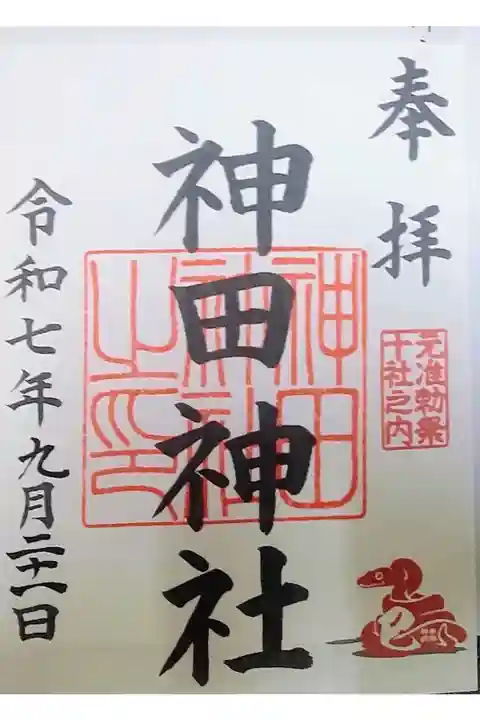 奉拝
元准勅祭
十社之内
神田神社
神田
神社
之印
令和七年九月二十一日